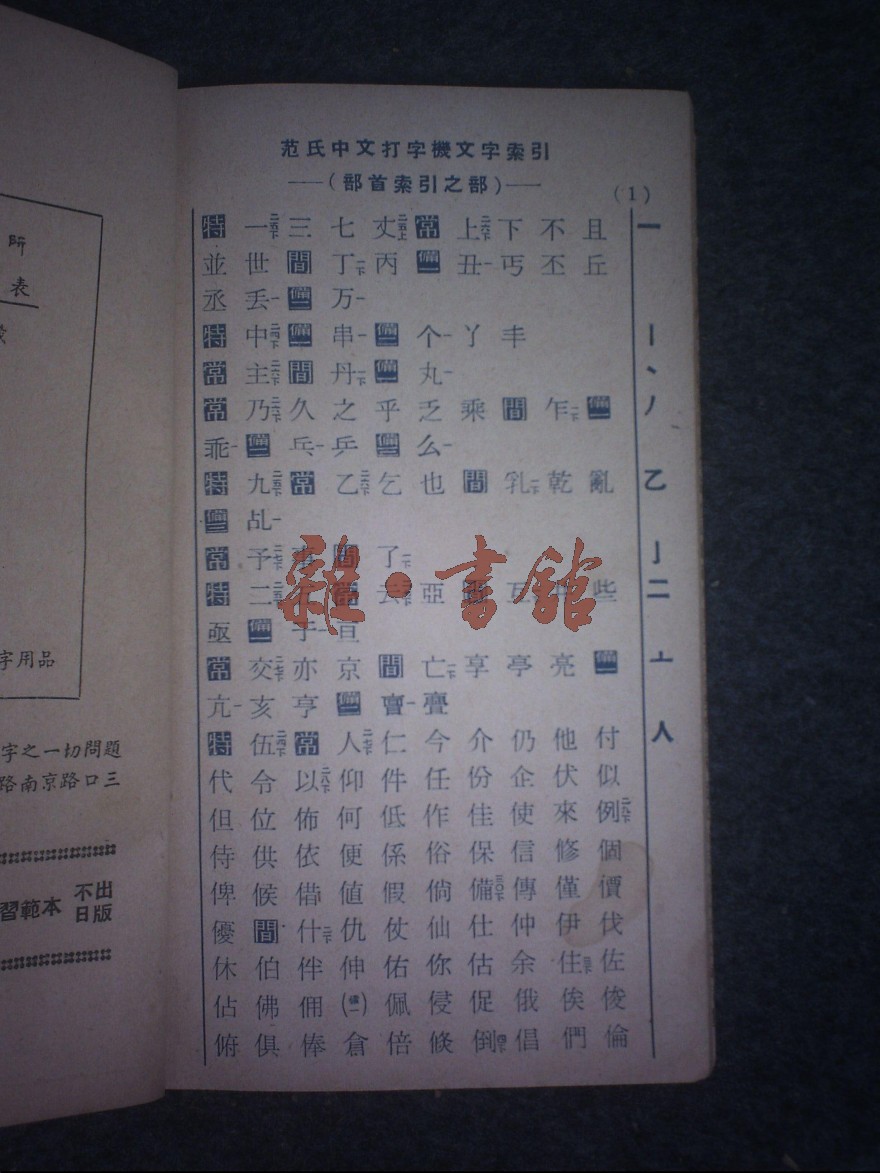 范氏中文打字機文字索引
——（部首索引之部）——
(1)
特 一 三 七 丈 常 上 下 不 且 一
並 世 間 丁 丙 備一 丑 丐 丕 丘
丞 丟 備二 万
特 中 備一 串 備二 个 丫 丰 丨
常 主 間 丹 備一 丸 丶
常 乃 久 之 乎 乏 乘 間 乍 備一 丿
乖 備一 乓 乒 備二 么
特 九 常 乙 乞 也 間 乳 乾 亂 乙
備二 乩
常 予 間 了 亅
特 二 常 云 亞 互 些 二
亟 備一 于 亘
常 交 亦 京 間 亡 享 亭 亮 備一 亠
亢 亥 亨 備二 亶 亹
特 伍 常 人 仁 今 介 仍 他 付 人
代 令 以 仰 件 任 份 企 伏 似
但 位 佈 何 低 作 佳 使 來 例
侍 供 依 便 係 俗 保 信 修 個
俾 候 借 值 假 倘 備 傳 僅 價
優 間 什 仇 仗 仙 仕 仲 伊 伐
休 伯 伴 伸 佑 你 估 余 住 佐
佔 佛 佣 (備一) 佩 侵 促 俄 俟 俊
俯 俱 俸 倉 倍 倏 倒 倡 們 倫
所
表
字用品
字之一切問題
路南京路口三
習範本 不日出版
雜·書館